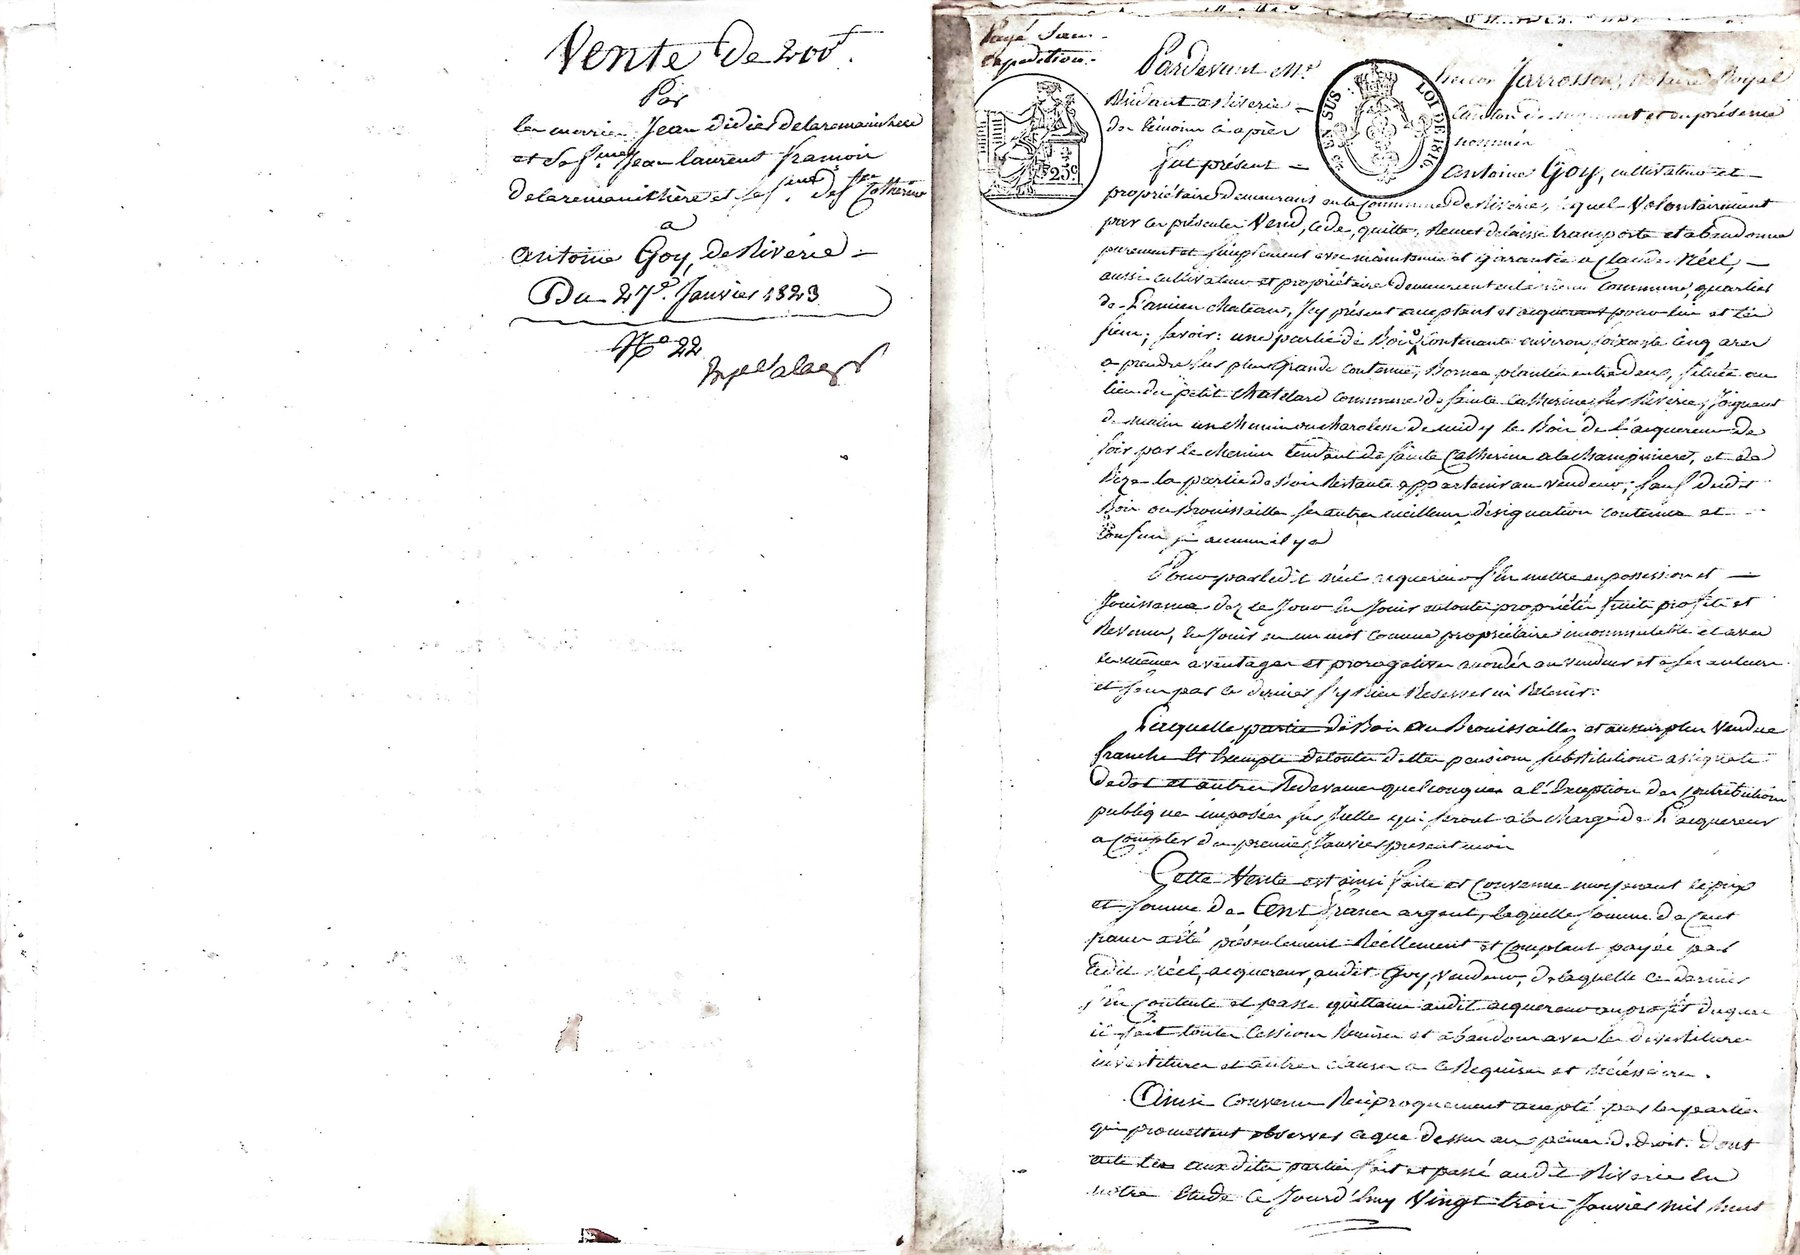 Vente de 200f.
Par
les mariés Jean didier delaremanichere
et Sa fme, Jean laurent framoir
delaremanichère et Sa fme de Ste Catherine
a
antoine Goy, de Riverie
Du 27e. Janvier 1823
No 22
Payé Sans
expedition.
Pardevant Me. Jarrosson, notaire Royal
Résidant a Riverie canton de mornant et en présence
des témoins ci après nommés
fut présent antoine Goy, cultivateur et
EN SUS LOI DE 1816
25c
propriétaire demeurant en la Commune de Riverie, lequel Volontairement
par ces présentes Vend, cede, quitte, Remet delaisse transporte et abandonne
purement et simplement avec maintenue et garantie a Claude Néel,
aussi cultivateur et propriétaire demeurant en la même Commune, quartier
de L'ancien chateau, Icy présent acceptant et acquereur pour lui et les
siens; Savoir: une partie de Bois Contenante environ soixante cinq ares
a prendre sur plus grande contenue, Bornes plantées entre deux, située au
lieu du petit Chatelard commune de Sainte Catherine sur Riverie, Joignant
de matin un chemin ou charoliere de midy le Bois de L'acquereur de
soir par le chemin tendant de Sainte Catherine a la champinere, et de
Bize la partie de Bois Restante appartenir au Vendeur, Sauf desdits
Bois ou Brouissailles ses autres meilleurs désignation contenue et
Confins si aucuns il y a
Pour par ledit Néel acquereur s'en mettre en possession et
Jouissance dez ce Jour en Jouir en toute propriété fruits profits et
Revenus, en Jouir en un mot comme propriétaire incommutable et avec
les mêmes avantages et prerogatives accordés au Vendeur et a ses auteurs
et sans par ce dernier s'y Rien Reserver ni Retenir.
Laquelle partie de Bois ou Brouissailles et au surplus Vendue
franche Et Exempte de toutes dettes pensions substitutions assignats
de dot et autres Redevances quelconques a l'Exception des Contributions
publiques imposées sur Icelle qui seront a la charge de L'acquereur
a compter du premier Janvier présent mois
Cette Vente est ainsi faite et Convenue moyenant le prix
et somme de Cent francs argent, laquelle somme de Cent
francs a été présentement Réellement et Comptant payée par
ledit Néel, acquereur, audit Goy, Vendeur, de laquelle ce dernier
s'en Contente et passe quittance audit acquereur au profit duquel
il fait toutes Cessions Remises et abandons avec les devestitures
investitures et autres clauses a ce Requises et nécéssaires.
Ainsi Convenu Réciproquement accepté par les parties
qui promettent observer ce que dessus aux peines de droit. Dont
acte aux dites parties fait et passé audit Riverie en
notre Etude Ce Jourd'huy Vingt trois Janvier mil huit